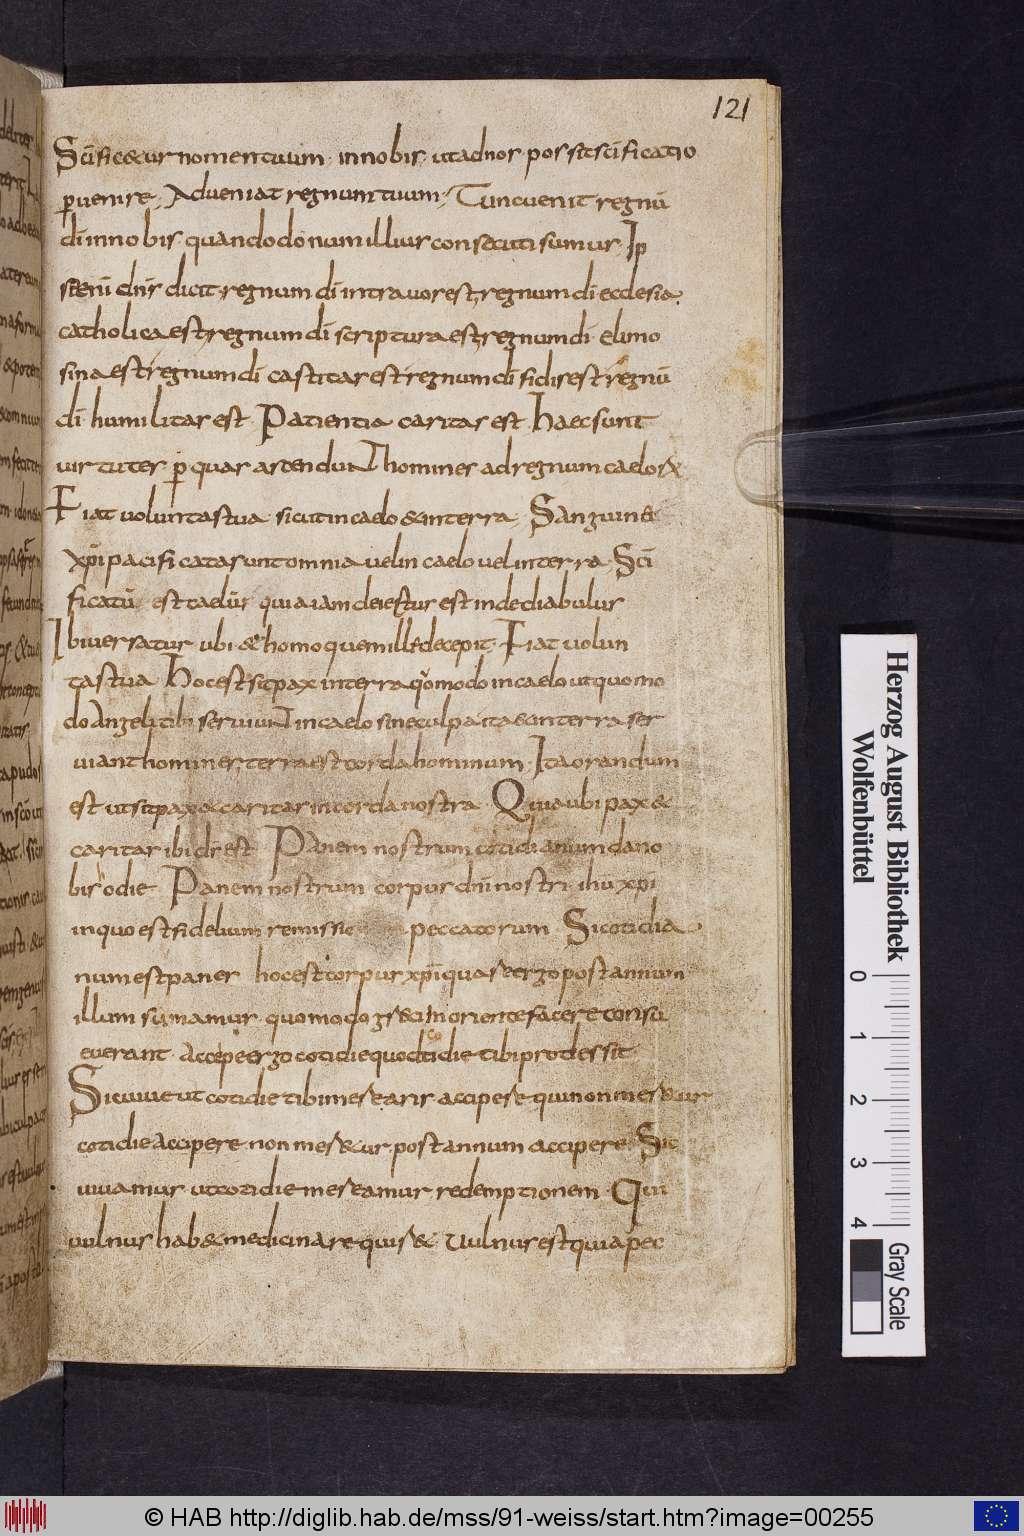 121
Scificetur nomen tuum. in nobis. ut ad nos possit scificatio
pvenire. Adveniat regnum tuum. Tunc uenit regnū
di in nobis. quando donum illius consecuti sumus. Ip
se enī dn̄s dicit. regnum di intra uos est. regnum di ecclesia
catholica est. regnum di scriptura est. regnum di. elimo
sina est. regnum di castitas est. regnum di fidis est. regnū
di. humilitas est. Patientia caritas est. Haec sunt
uirtutes. p quas ascendunt homines ad regnum caelos &
Fiat voluntas tua sicut in caelo & in terra. Sanguine
xpi pacificata sunt omnia uel in caelo uel in terra. Sci
ficatū est caelū quia iam deiectus est inde diabulus
Ibi uersatur ubi & homo quem ille decepit. Fiat volun
tas tua. Hoc est sit pax in terra qomodo in caelo ut quomo
do Angeli tibi seruiunt in caelo sine culpa ita & in terra ser
uiant homines. terra est corda hominum. Ita orandum
est ut sit pax & caritas in corda nostra. Quia ubi pax &
caritas ibi ds est. Panem nostrum cotidianum da no
bis odie. Panem nostrum corpus dni nostri. ihu xpi
in quo est fidelium remissio peccatorum. Si cotidia
num est panes hoc est corpus xpi quare ergo post annum
illum sumamus. quomodo greci in oriente facere consu
euerant. Accipe ergo cotidie quod cotidie tibi prodessit
Sic uiue ut cotidie tibi merearis accipere qui non meretur
cotidie accipere. non meretur. post annum accipere. Sic
uiuamus. ut cotidie mereamur redemptionem. Qui
uulnus habet medicina requiret. Uulnus est quia pec
Herzog August Bibliothek
Wolfenbüttel
0 1 2 3 4
Gray Scale
© HAB http://diglib.hab.de/mss/91-weiss/start.htm?image=00255